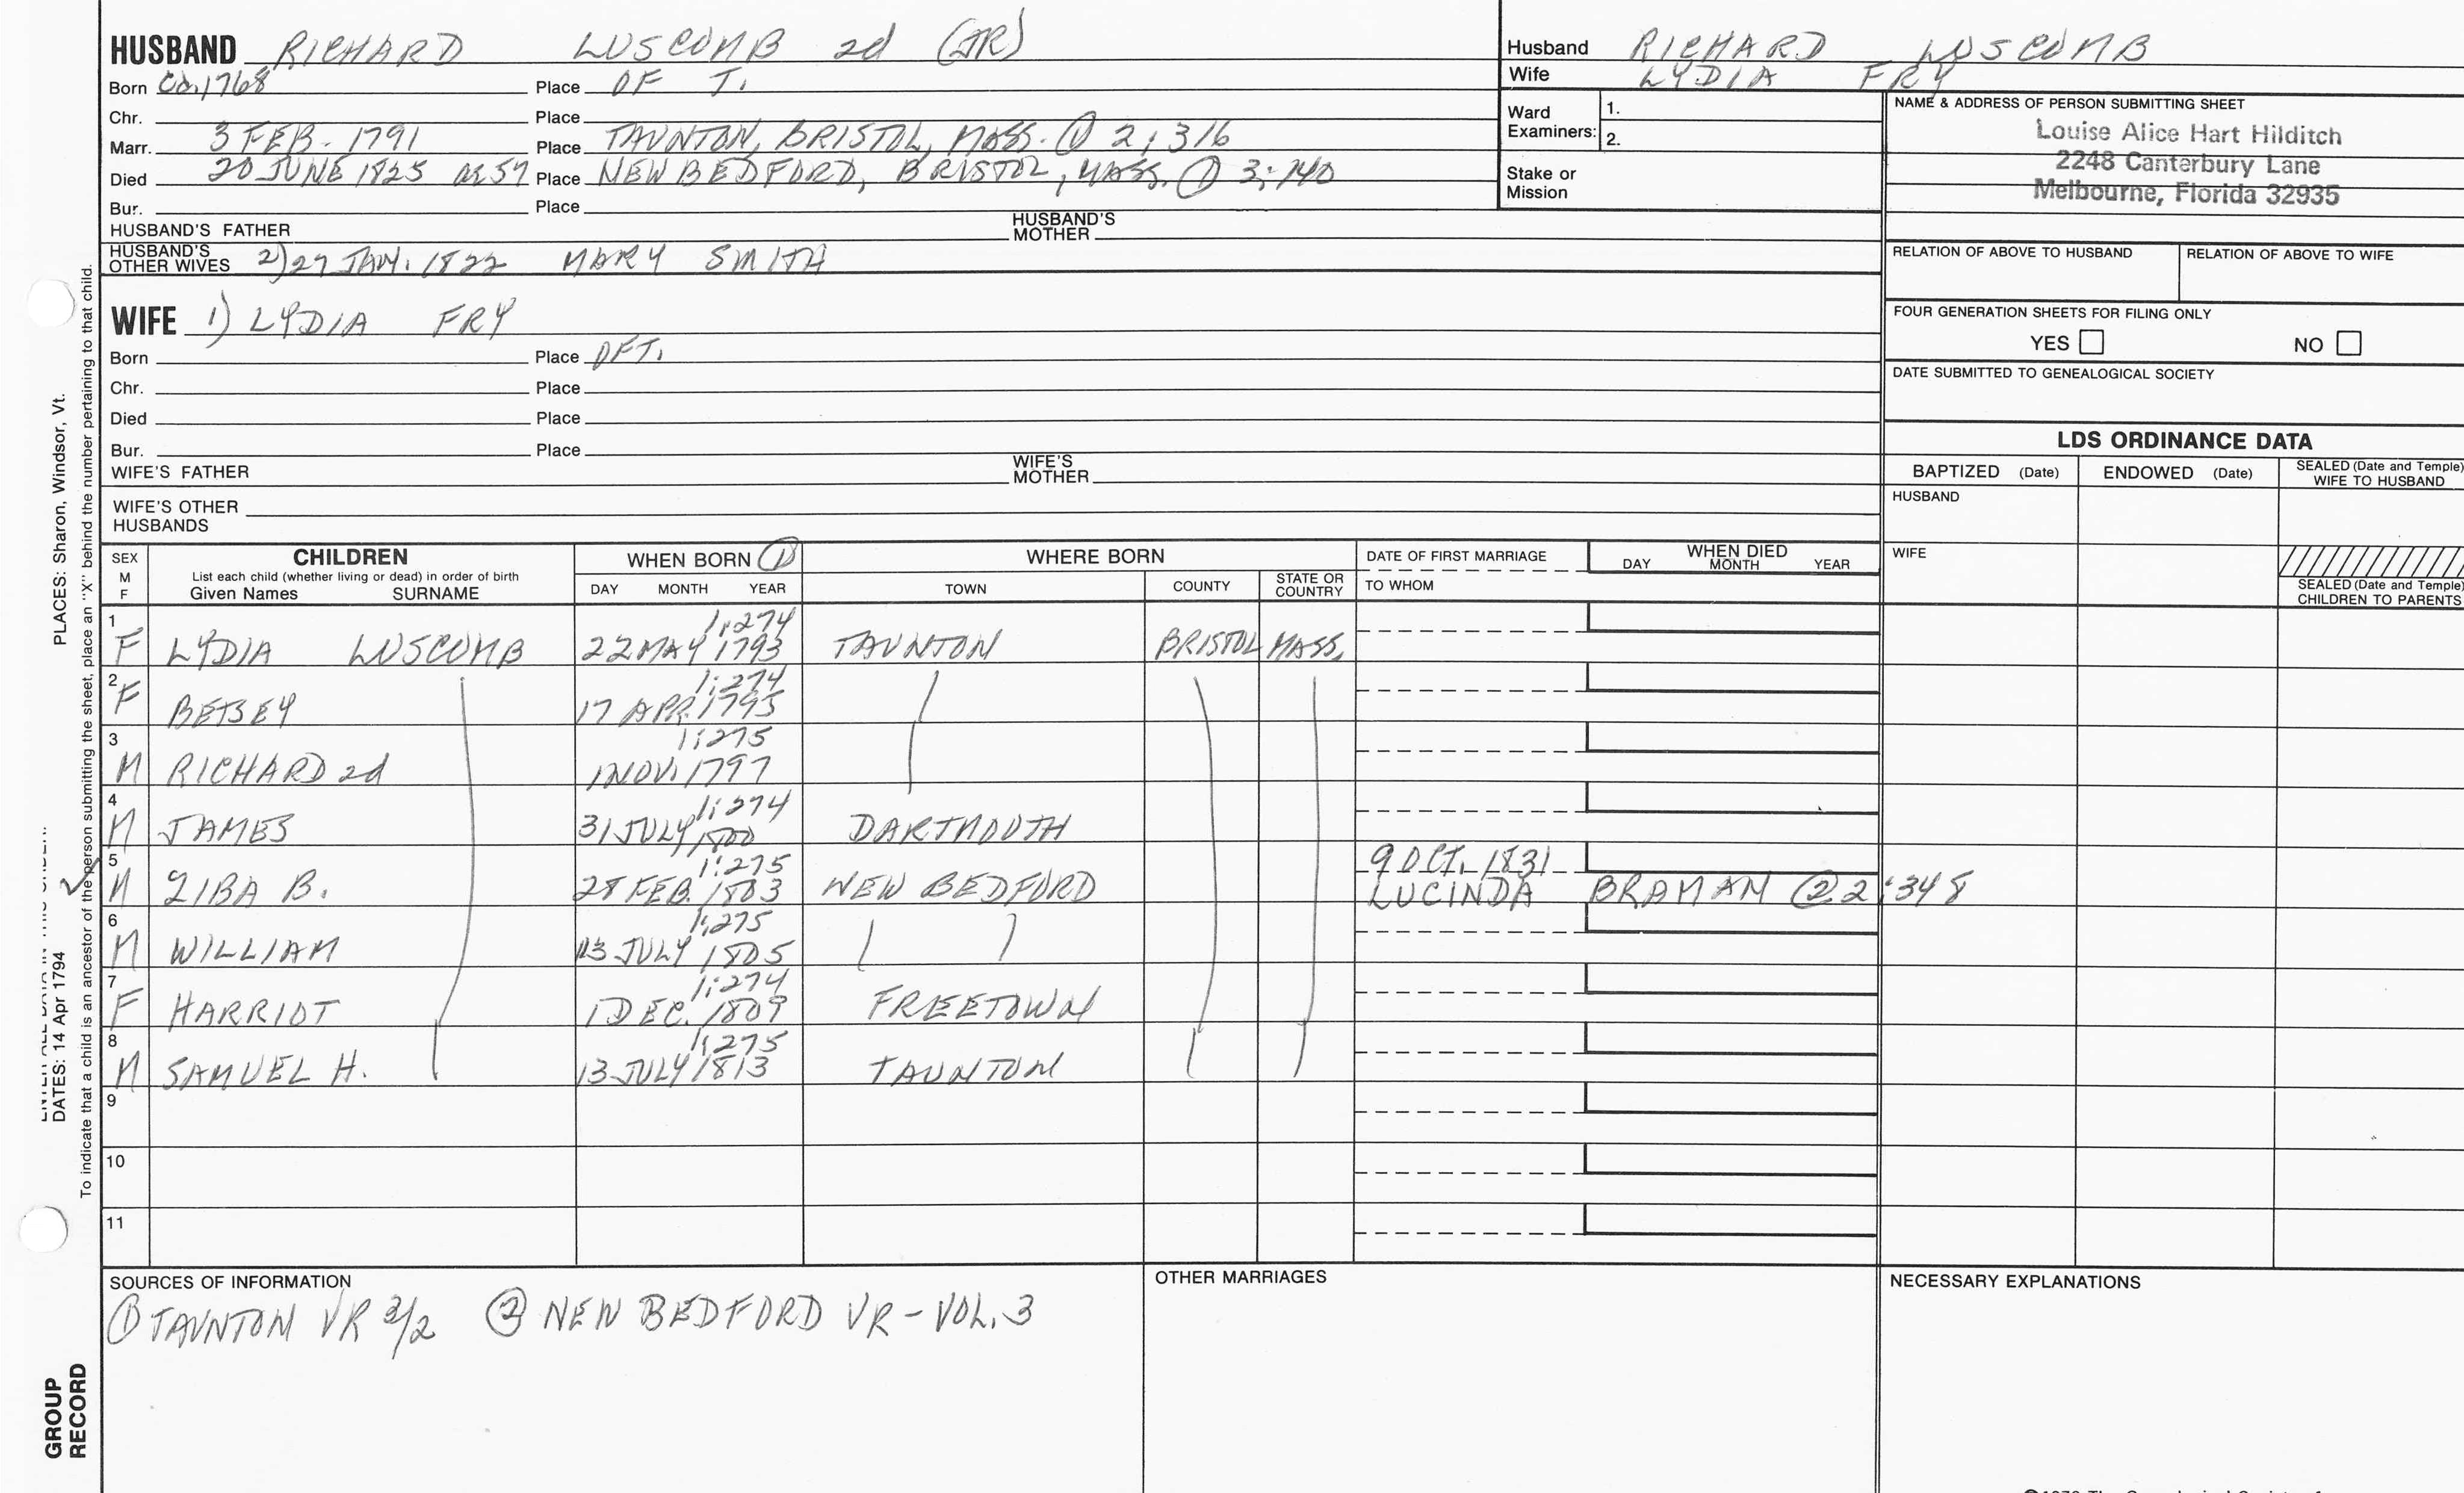 HUSBAND RICHARD LUSCOMB 2d (JR)
Born Ca. 1768 Place OF T.
Chr. Place
Marr. 3 FEB. 1791 Place TAUNTON, BRISTOL, MASS. ① 2:316
Died 20 JUNE 1825 ae 57 Place NEW BEDFORD, BRISTOL, MASS. ① 3:140
Bur. Place
HUSBAND'S FATHER HUSBAND'S MOTHER
HUSBAND'S OTHER WIVES 2) 27 JAN. 1822 MARY SMITH
WIFE 1) LYDIA FRY
Born Place OF T.
Chr. Place
Died Place
Bur. Place
WIFE'S FATHER WIFE'S MOTHER
WIFE'S OTHER HUSBANDS
Husband RICHARD LUSCOMB
Wife LYDIA FRY
Ward Examiners: 1.
2.
Stake or Mission
NAME & ADDRESS OF PERSON SUBMITTING SHEET
Louise Alice Hart Hilditch
2248 Canterbury Lane
Melbourne, Florida 32935
RELATION OF ABOVE TO HUSBAND RELATION OF ABOVE TO WIFE
FOUR GENERATION SHEETS FOR FILING ONLY
YES NO
DATE SUBMITTED TO GENEALOGICAL SOCIETY
LDS ORDINANCE DATA
BAPTIZED (Date) ENDOWED (Date) SEALED (Date and Temple) WIFE TO HUSBAND
HUSBAND
WIFE
SEALED (Date and Temple) CHILDREN TO PARENTS
SEX M F
CHILDREN
List each child (whether living or dead) in order of birth
Given Names SURNAME
WHEN BORN ①
DAY MONTH YEAR
WHERE BORN
TOWN COUNTY STATE OR COUNTRY
DATE OF FIRST MARRIAGE
TO WHOM
WHEN DIED
DAY MONTH YEAR
1 1:274
F LYDIA LUSCOMB 22 MAY 1793 TAUNTON BRISTOL MASS.
2 1:274
F BETSEY 17 APR. 1795
3 1:275
M RICHARD 2d 1 NOV. 1797
4 1:274
M JAMES 31 JULY 1800 DARTMOUTH
5 1:275 9 OCT. 1831
M ZIBA B. 28 FEB. 1803 NEW BEDFORD LUCINDA BRAMAN @ 2 2:348
6 1:275
M WILLIAM 13 JULY 1805
7 1:274
F HARRIOT 1 DEC. 1809 FREETOWN
8 1:275
M SAMUEL H. 13 JULY 1813 TAUNTON
9
10
11
SOURCES OF INFORMATION
① TAUNTON VR ② NEW BEDFORD VR - VOL. 3
OTHER MARRIAGES
NECESSARY EXPLANATIONS
PLACES: Sharon, Windsor, Vt.
DATES: 14 Apr 1794
To indicate that a child is an ancestor of the person submitting the sheet, place an "X" behind the number pertaining to that child.
GROUP RECORD